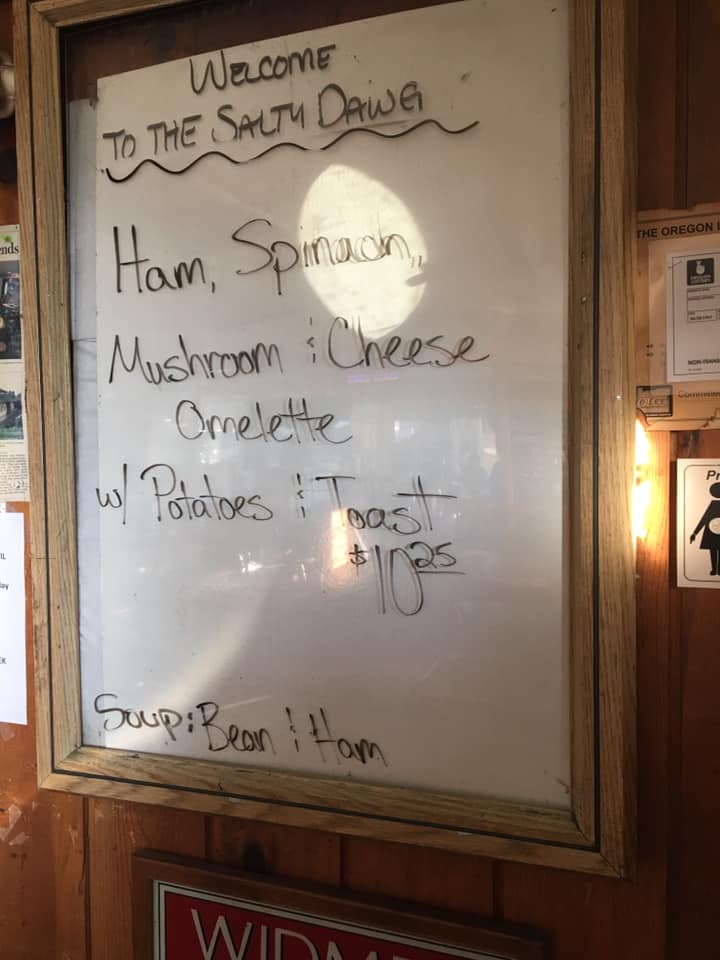 WELCOME
TO THE SALTY DAWG
Ham, Spinach,
Mushroom & Cheese
Omelette
w/ Potatoes & Toast
$10.25
Soup: Bean & Ham
THE OREGON
NON-TRANS
OLCC
WIDM
ends